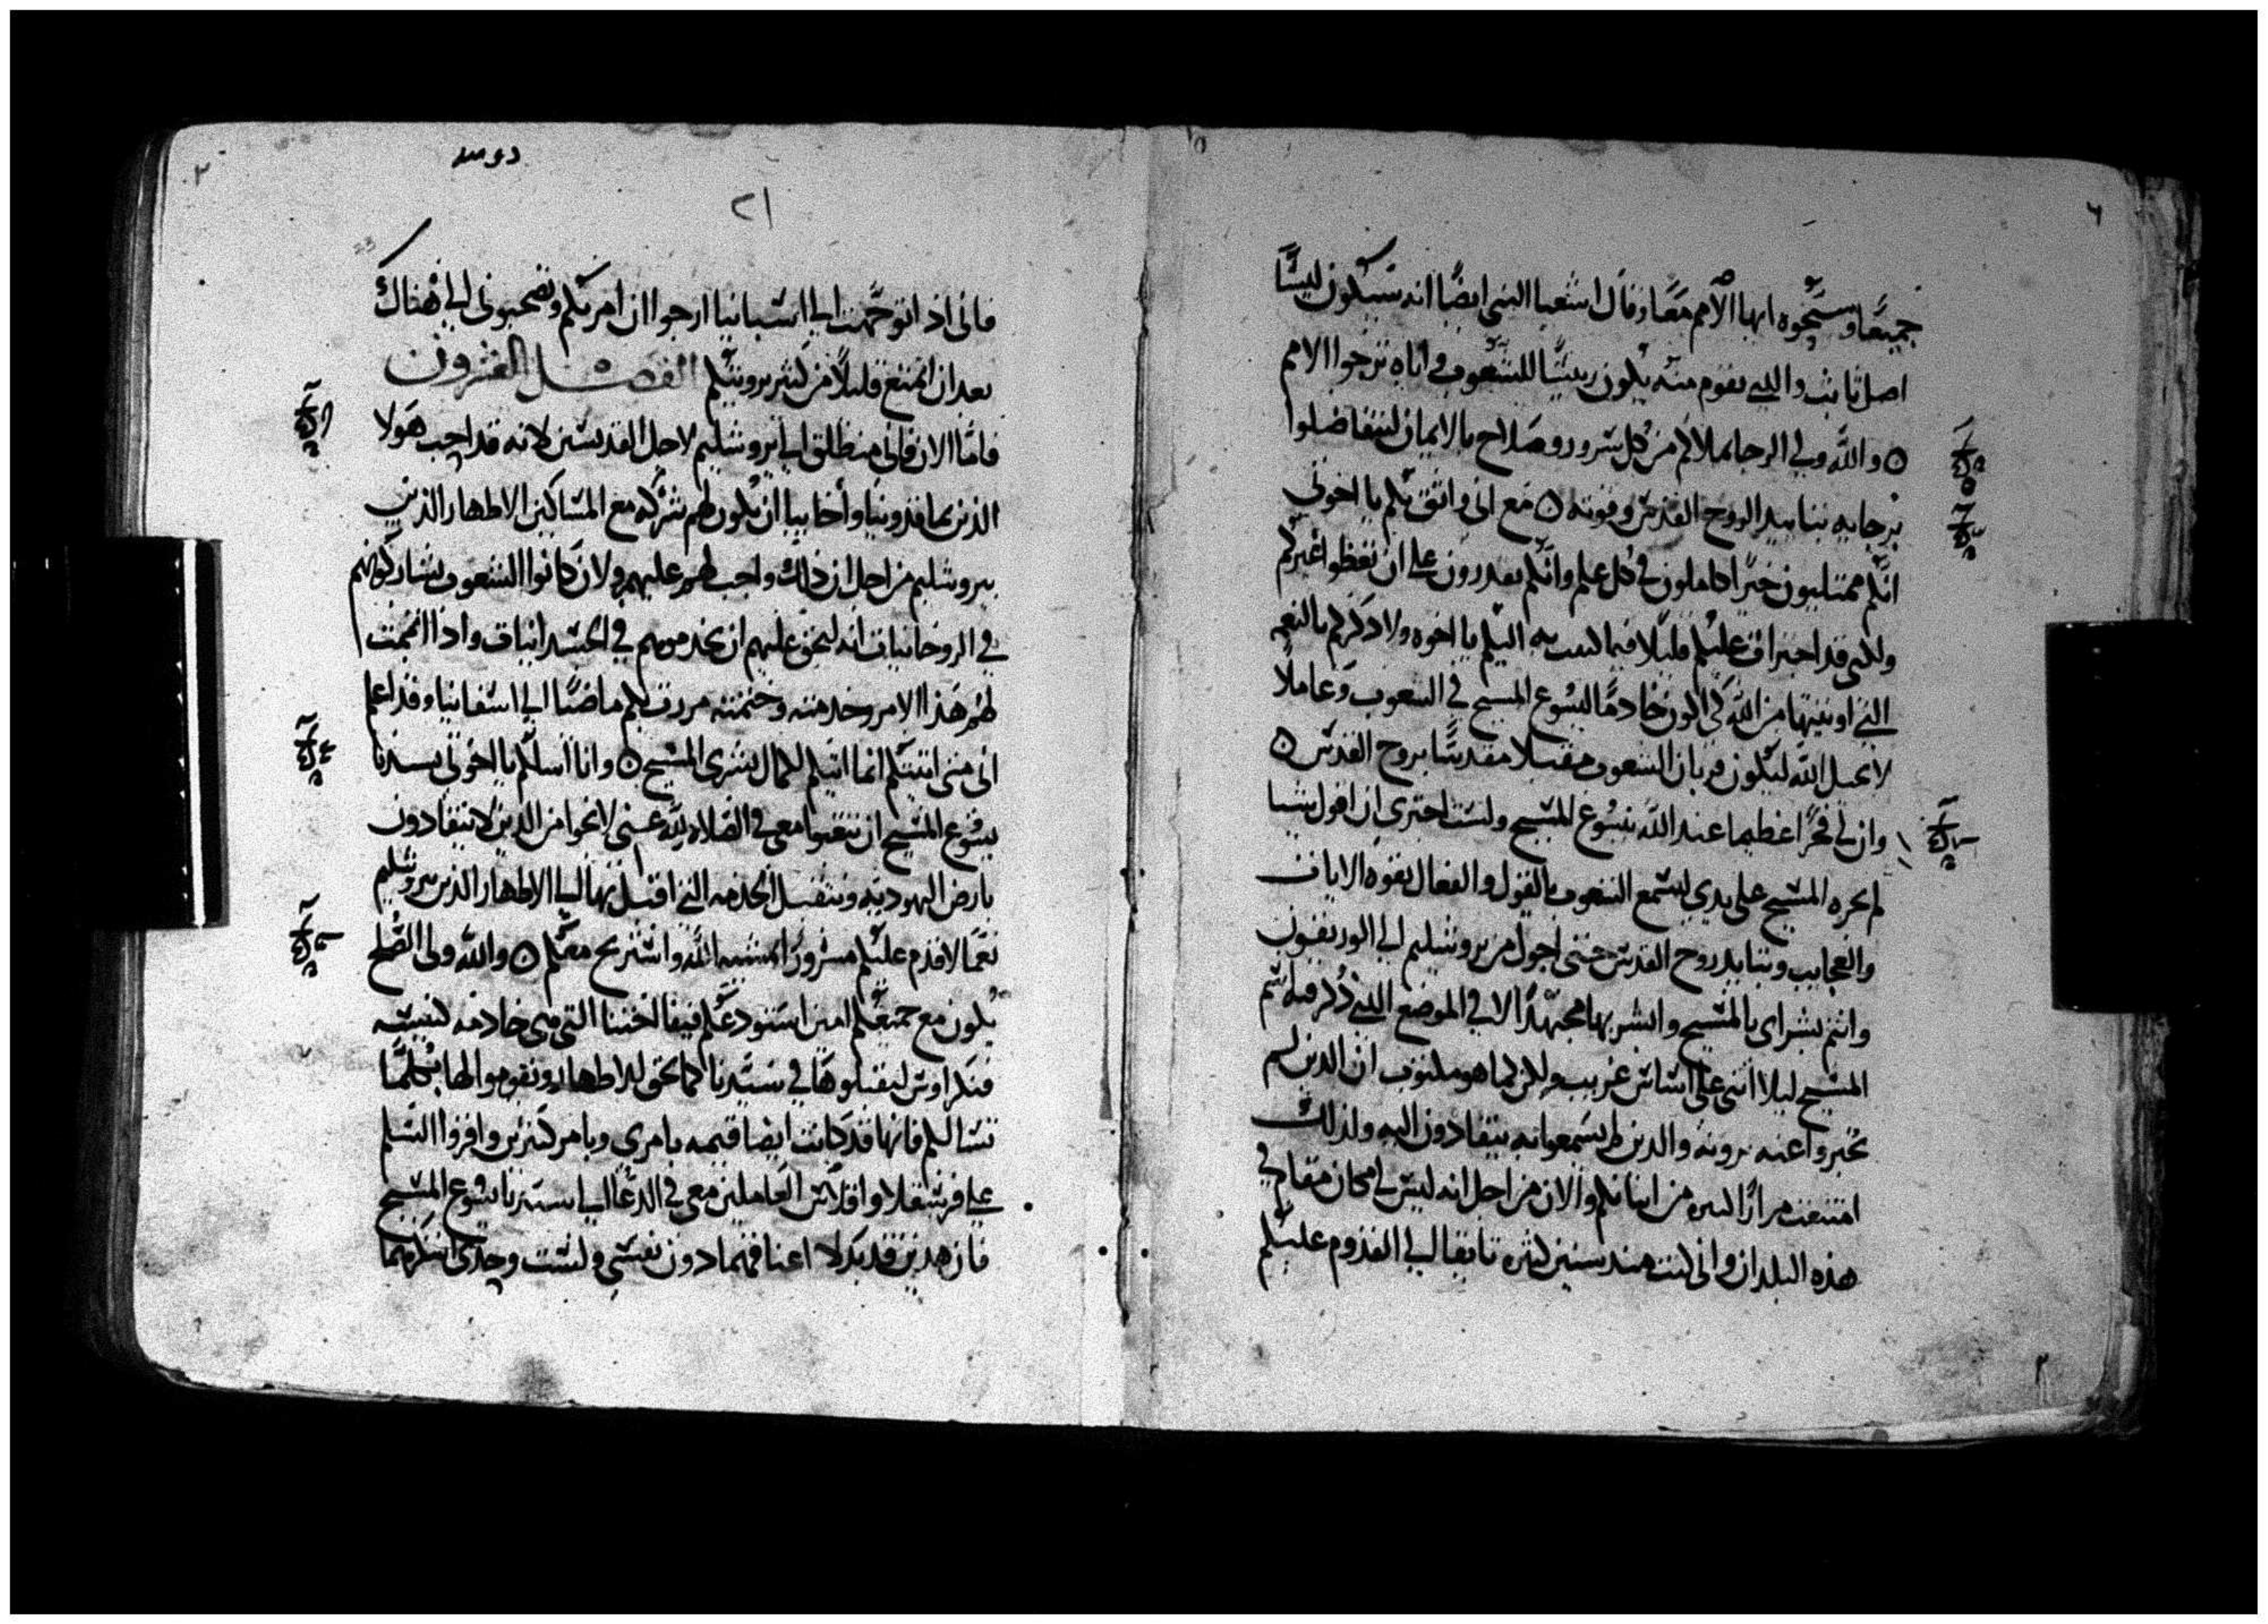 جميعًا وسبحوه ايها الامم معًا وقال اشعيا النبي ايضًا انه سيكون ليسًّا
اصل ثابت والذي يقوم منه يكون رييسًا للشعوب واياه ترجوا الامم
والله ولي الرجا يملاكم من كل سرور وصلاح بالايمان لتتفاضلوا
برجايه بتاييد الروح القدس وقوته مع اني واثق بكم يا اخوتي
انكم ممتليون خيرًا كاملون في كل علم وانكم تقدرون على ان تعظوا غيركم
ولكني قد اجترات عليكم قليلًا فيما كتبت به اليكم يا اخوه ولاذكركم بالنعمه
التي اوتيتها من الله كي اكون خادمًا ليسوع المسيح في الشعوب وعاملًا
لانجيل الله ليكون قربان الشعوب مقبلا مقدسًا بروح القدس
وان لي فخرًا عظيما عند الله بيسوع المسيح ولست اجتري ان اقول شيا
لم يجره المسيح على يدي لتسمع الشعوب بالقول والفعال بقوه الايات
والعجايب وبتاييد روح القدس حتى اجول من يروشليم الى الوريقون
واتم بشراي بالمسيح وابشر بها مجتهدًا لا في الموضع الذي ذكر فيه اسم
المسيح ليلا ابني على اساس غريب ولكن كما هو مكتوب ان الذين لم
يخبروا عنه يرونه والذين لم يسمعوا به ينقادون اليه ولذلك
امتنعت مرارًا كثيره من اتيانكم والان من اجل انه ليس لي مكان مقام في
هذه البلدان واني كنت منذ سنين كثيره تايقا الى القدوم عليكم
٢١
فاني اذا توجهت الى اسبانيا ارجوا ان امر بكم وتصحبوني الى هناك
بعد ان اتمتع قليلًا من كثير برويتكم الفصل العشرون
فاما الان فاني منطلق الى يروشليم لاجل القديسين لانه قد احب هولا
الذين بماقدونيا واخاييا ان يكون لهم شركه مع المساكين الاطهار الذين
بيروشليم من اجل ان ذلك واجب لهم عليهم ولان كانوا الشعوب يشاركونهم
في الروحانيات انه ليحق عليهم ان يخدموهم في الجسدانيات واذا اتممت
لهم هذا الامر وخدمته وختمته مررت بكم ماضيًا الى اسفانيا وقد اعلم
اني متى اتيتكم انما اتيكم بكمال بشرى المسيح وانا اسلكم يا اخوتي بسيدنا
يسوع المسيح ان تتعبوا معي في الصلاه لله عني لانجوا من الذين لا ينقادون
بارض اليهوديه وتتقبل الخدمه التي اقبل بها الى الاطهار الذين بيروشليم
نعمًا لاقدم عليكم مسرورًا بمشية الله واستريح معكم والله ولي الصلح
يكون مع جميعكم امين استودعكم فيفا اختنا التي هي خادمه كنيسه
قنكراوس لتقبلوها في سيدنا كما يحق للاطهار وتقوموا لها بكلما
تسالكم فانها قد كانت ايضا قيمه بامري وبامر كثيرين واقروا السلم
على فريسقلا واقلاس العاملين معي في الدعا الى سيدنا يسوع المسيح
فان هدين قد بدلا اعناقهما دون نفسي ولست وحدي اشكرهما